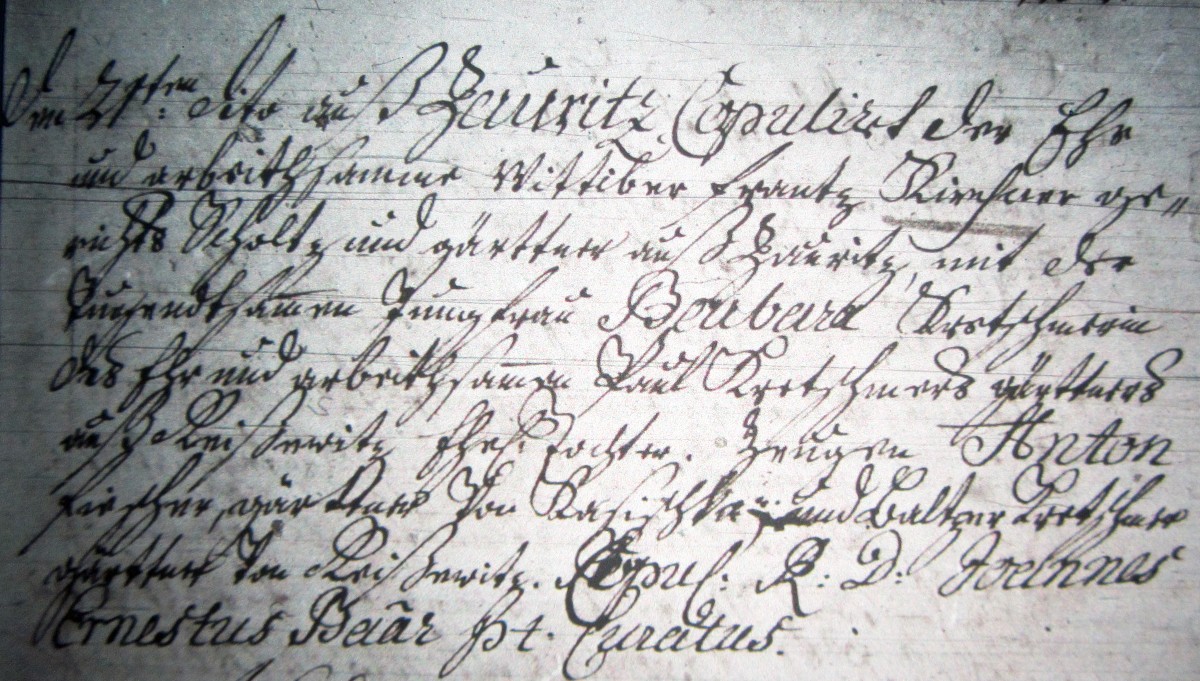 den 21sten: dito auß Zauritz Copulirt der Ehr
und arbeithsamme Wittiber Frantz Kirchner ge„
richts Scholtz und gärttner auß Zauritz, mit der
Tugendtsam̄en Jungfrau Barbara Kretschmerin
des Ehr und arbeithsam̄en Paul Kretschmers gärttners
auß Reissewitz Ehel: Tochter. Zeugen Anton
Fiescher, gärttner Von und Baltzer Kretschmer
gärttner Von Reissewitz. Copul: R: D: Joannes
Ernestus Baār pt. Curatus.